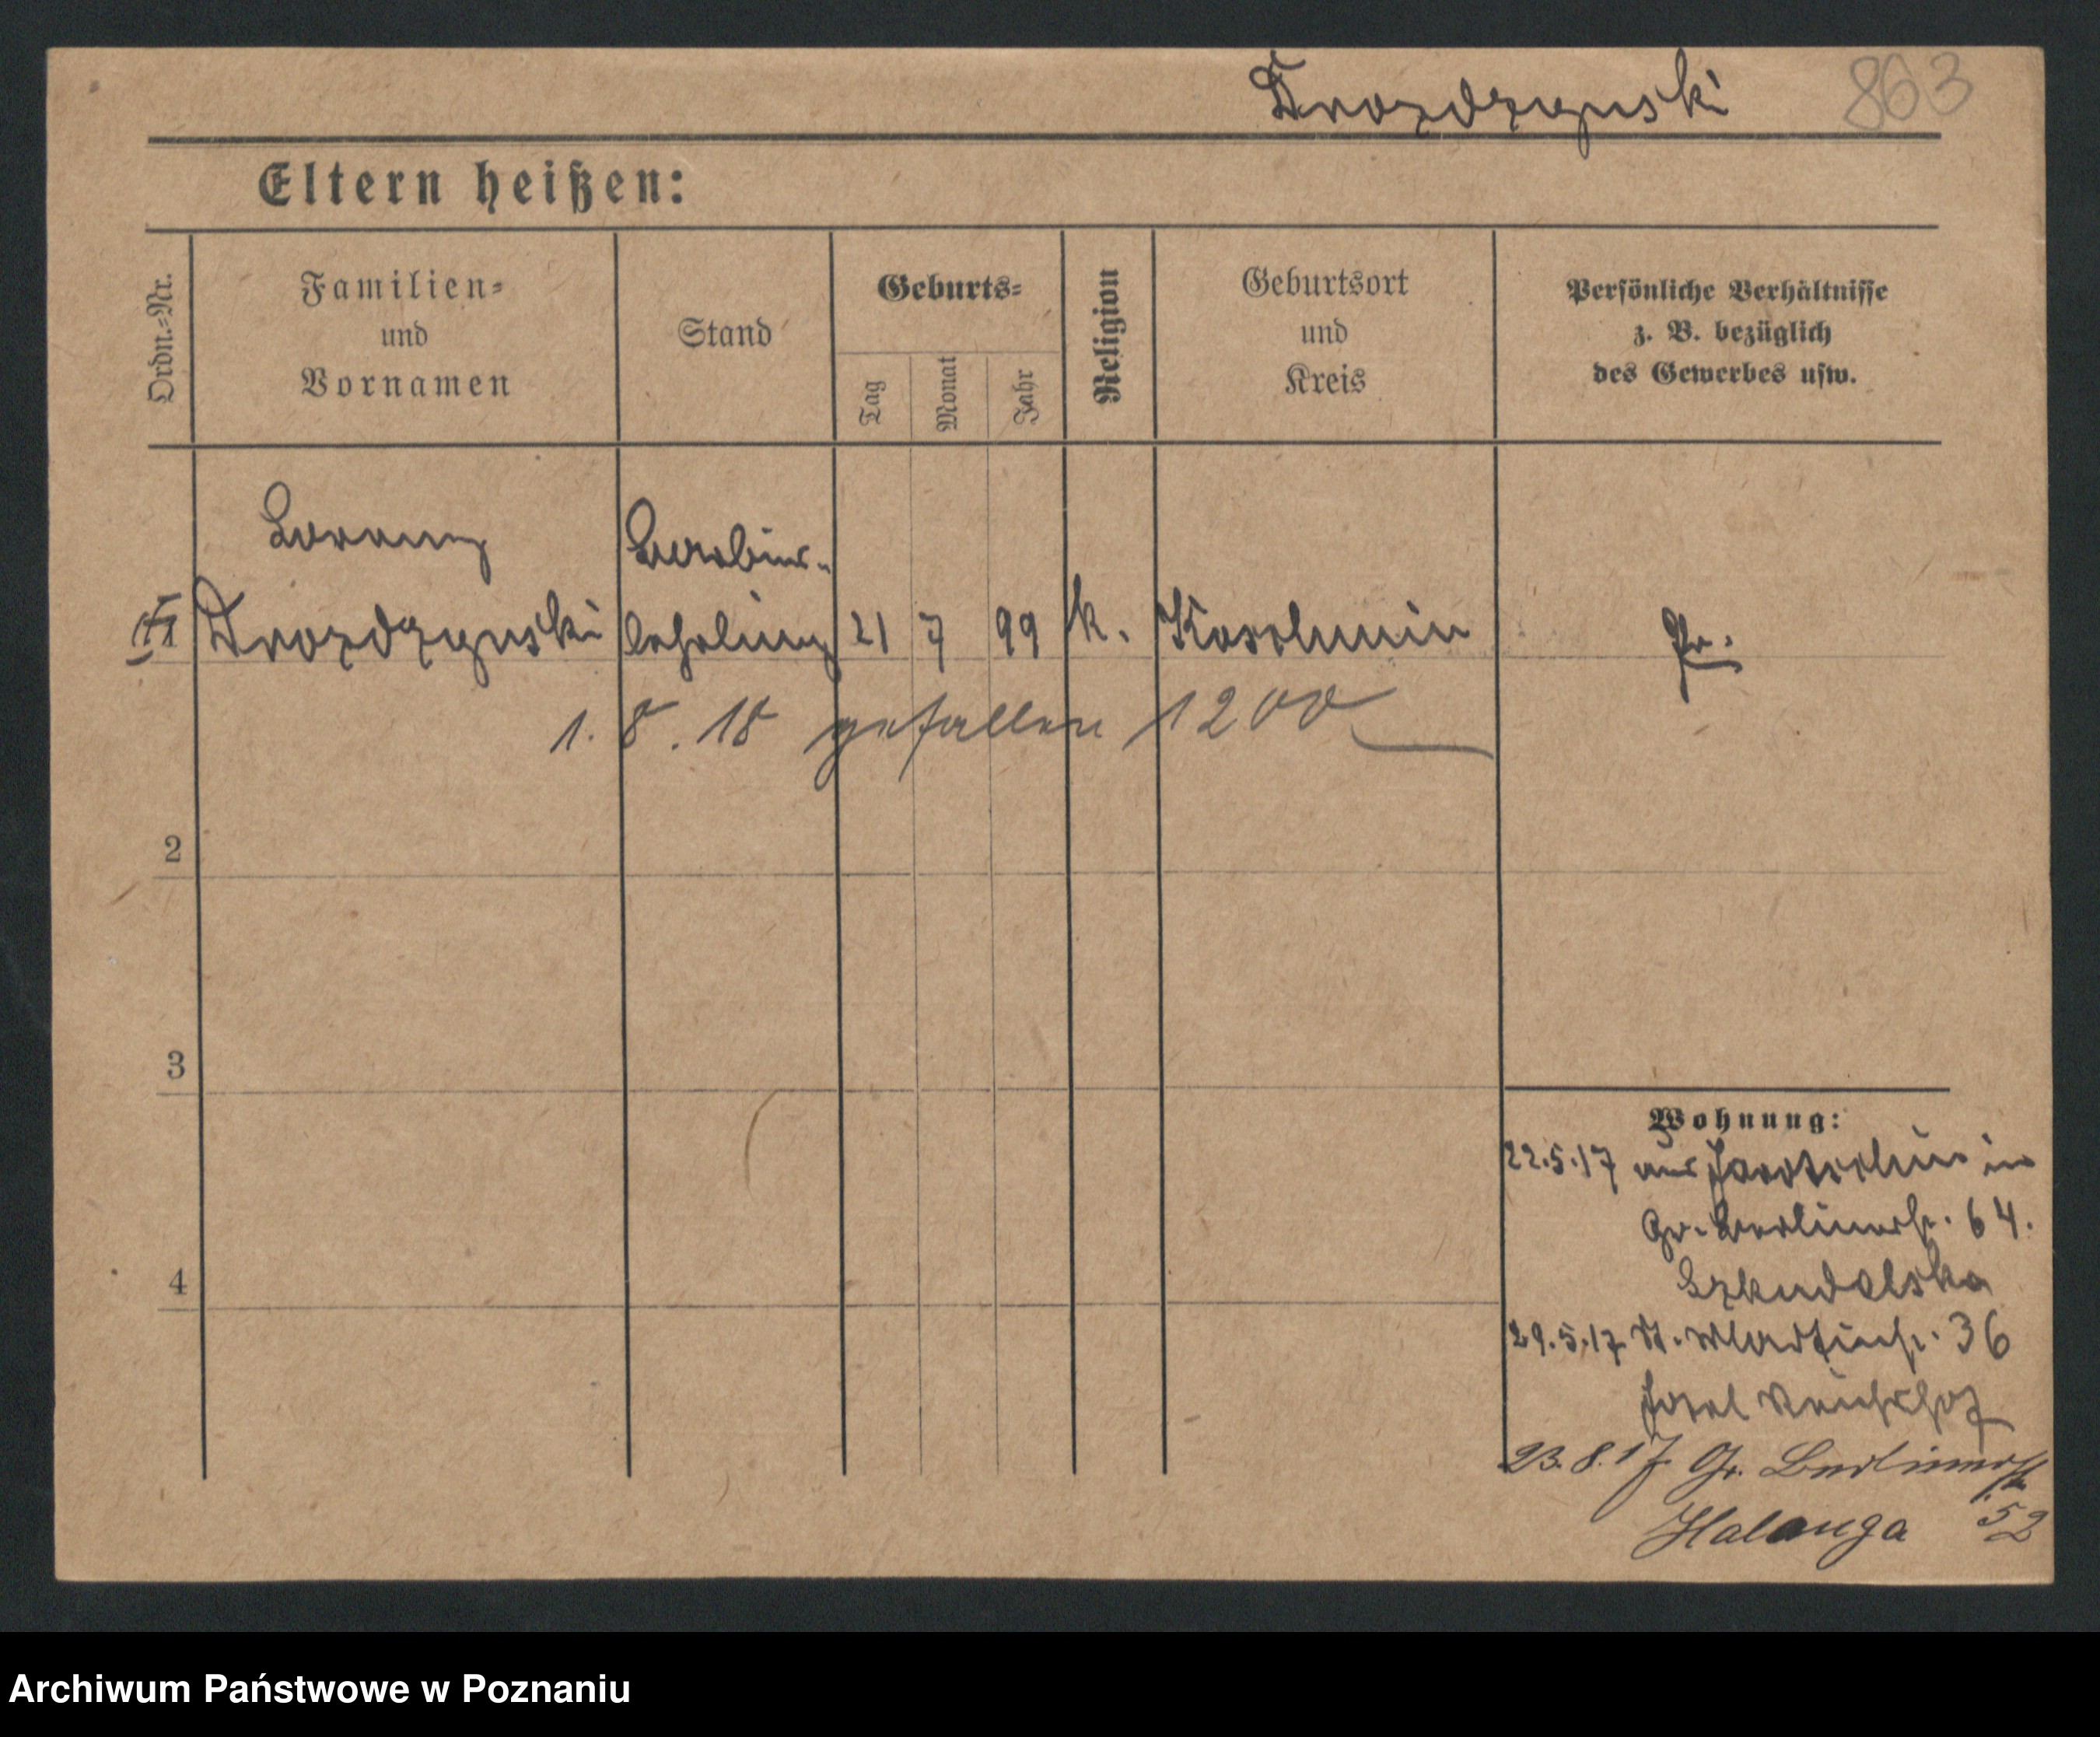 Drozdzynski 863
Eltern heißen:
Ordn.=Nr.
Familien=
und
Vornamen
Stand
Geburts=
Tag
Monat
Jahr
Religion
Geburtsort
und
Kreis
Persönliche Verhältnisse
z. B. bezüglich
des Gewerbes usw.
Lorenz
Drozdzynski
lehrling
21 7 99
k.
Koschmin
Pr.
1. 8. 18 gefallen 1200
2
3
4
Wohnung:
22.5.17 aus Jarotschin in
Gr. Berlinerstr. 64.
Szkudelska
29.5.17 St. Martinstr. 36
23.8.17 Gr. Berlinerstr.
Halanga 52
Archiwum Państwowe w Poznaniu